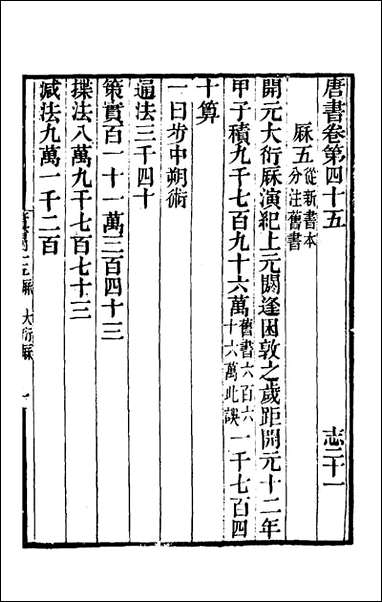 唐書卷第四十五
志二十一
厤五從新書本分注舊書
開元大衍厤演紀上元閼逢困敦之歲距開元十二年
甲子積九千七百九十六萬舊書六百六十六萬此誤一千七百四
十算
一曰步中朔術
通法三千四十
策實百一十一萬三百四十三
揲法八萬九千七百七十三
减法九萬一千二百
大衍厤